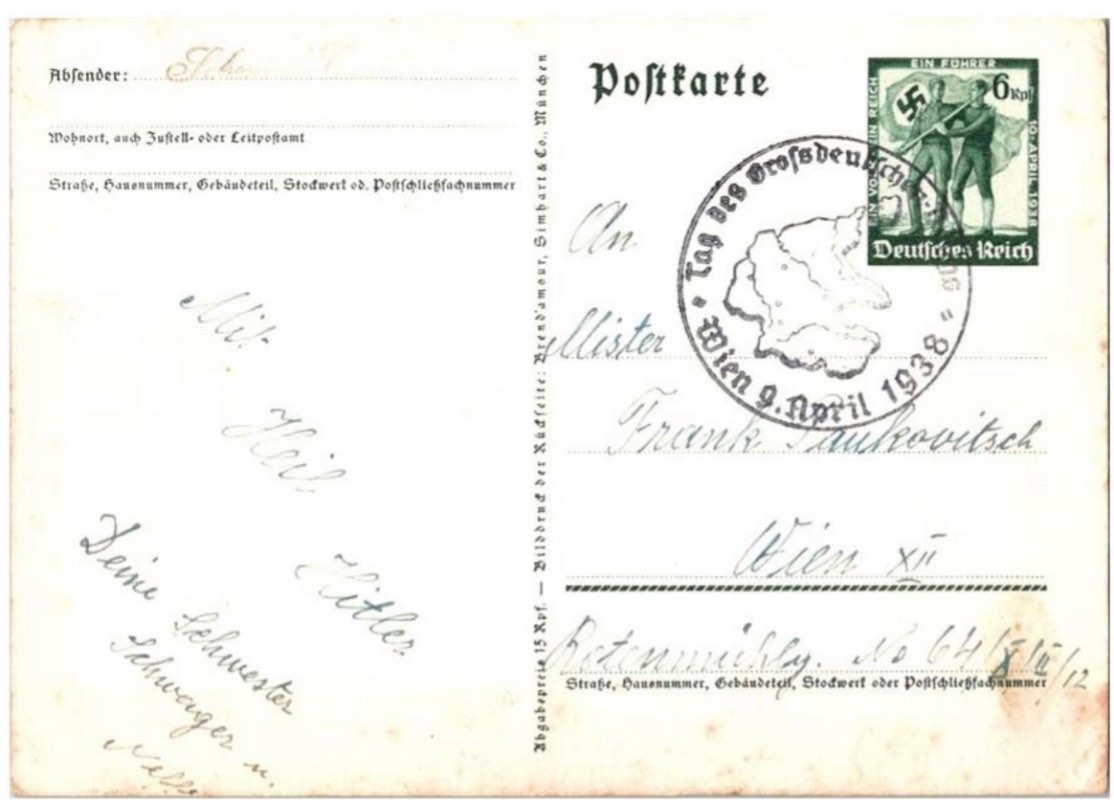 Absender:
Wohnort, auch Zustell- oder Leitpostamt
Straße, Hausnummer, Gebäudeteil, Stockwert od. Postschließfachnummer
Mit
Heil
Hitler
Deine Schwester
Schwager u.
Abgabepreis 15 Rpf. — Bilddruck der Rückseite: Brend'amour, Simhart & Co., München
Postkarte
EIN FÜHRER
EIN VOLK EIN REICH
10. APRIL 1938
6 Rpf
Deutsches Reich
Tag des Grossdeutschen
Wien 9. April 1938
An
Mister
Frank Paukovitsch
Wien XII
Rotenmühlg. No 64/X/II/12
Straße, Hausnummer, Gebäudeteil, Stockwerk oder Postschließfachnummer